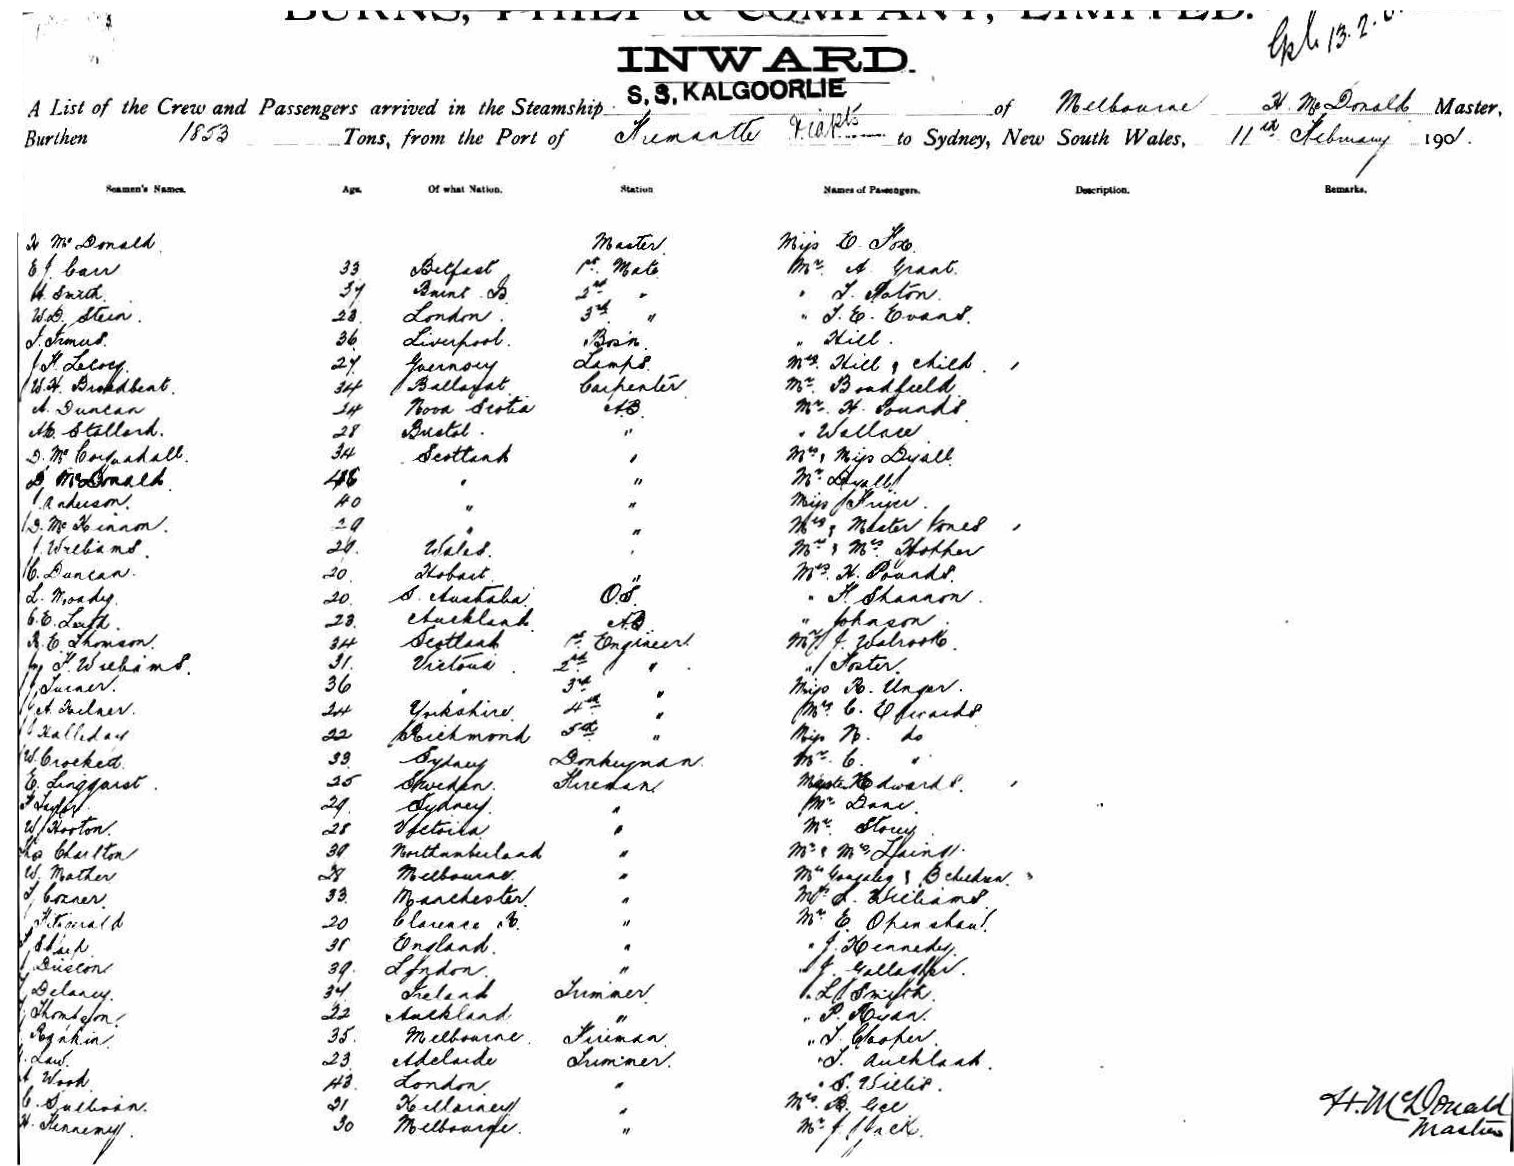 BURNS, PHILP & COMPANY, LIMITED.
13.2.
INWARD.
S.S. KALGOORLIE
A List of the Crew and Passengers arrived in the Steamship of Melbourne H. McDonald Master,
Burthen 1853 Tons, from the Port of Fremantle to Sydney, New South Wales, 11th February 1901.
Seamen's Names. Age. Of what Nation. Station Names of Passengers. Description. Remarks.
H McDonald Master Miss E. Fox
E J Carr 33 Belfast 1st Mate Mr A. Grant.
H Smith. 37 2nd " " T. Paton.
W.D. Stein. 28 London. 3rd " " T. E. Evans.
36 Liverpool. Bosn. " Hill.
27 Guernsey Lamps. Mrs Hill & child.
W. H. Broadbent. 34 Ballarat Carpenter Mr Broadfield
A. Duncan 24 Nova Scotia AB. Mr. H. Pounds.
Stallard. 28 Bristol. " " Wallace
D. Mc 34 Scotland " Mrs & Miss Dyall
D McDonald 48 " " Mr Dyall
J Anderson. 40 " " Miss J Fryer.
D. McKinnon. 29 " " Mrs & Master Jones
J Williams. 29. Wales. " Mr & Mrs Hopper
C. Duncan. 20 Hobart. " Mrs. H. Pounds.
L. Moody. 20. S. Australia. O.S. " F. Shannon.
C. E. Leith. 23. Auckland. AB " Johnson.
R. E. Thomson. 34 Scotland 1st Engineer Mr J. Walrook.
F. Williams. 31. Victoria. 2nd " " Foster.
J Turner. 36 " 3rd " Miss R. Unger.
A. Kilner. 24 Yorkshire. 4th " Mrs. C. Edwards
Halliday 22 Richmond 5th " Miss N. do
W. Crocked. 33. Sydney Donkeyman. Mr. C. "
E. Lingquist. 25 Sweden. Fireman. Master Edwards.
F Taylor 29. Sydney. " Mr Dane.
W Hooton. 28 Victoria " Mr. Storey
Thos Charlton 39 Northumberland " Mr & Mrs Laing.
W. Mather 28 Melbourne. " Mrs Gonzales & 3 children.
T. Corner. 33. Manchester. " L. Williams.
J Fitzgerald 20 Clarence R. " Mr E. Openshaw.
Sharp 38 England. " " J. Kennedy.
39. London. " " J. Gallagher.
T Delaney. 34 Ireland Trimmer. " L. Smyth.
J Thompson. 22 Auckland " " P. Ryan.
Rankin. 35. Melbourne. Fireman. " T. Cooper.
Law. 23. Adelaide Trimmer. " T. Auckland.
A Wood 43. London " " S. Willis.
C. Sullivan. 21 Killarney " Mrs. B. Gee
H. Kennemy. 30 Melbourne. " Mr J. Jack.
H. McDonald
Master